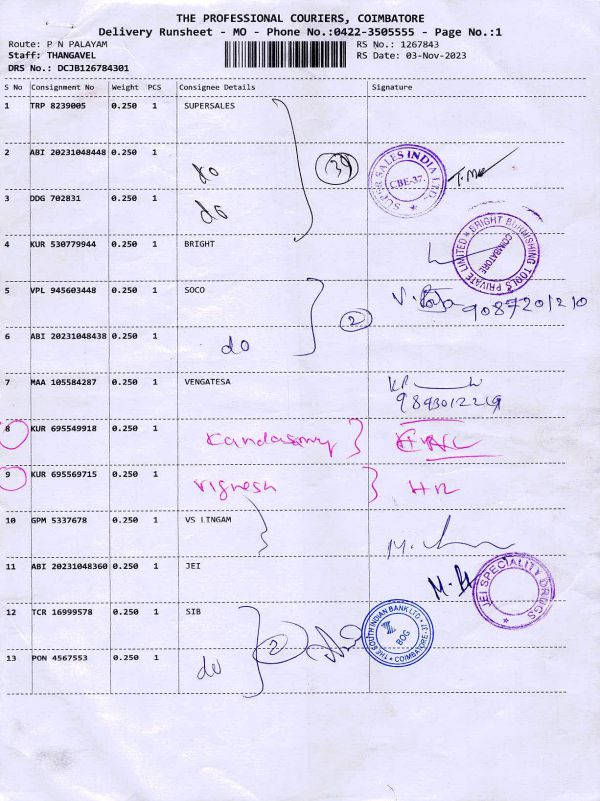 THE PROFESSIONAL COURIERS, COIMBATORE
Delivery Runsheet - MO - Phone No.:0422-3505555 - Page No.:1
Route: P N PALAYAM RS No.: 1267843
Staff: THANGAVEL RS Date: 03-Nov-2023
DRS No.: DCJB126784301
S No Consignment No Weight PCS Consignee Details Signature
1 TRP 8239005 0.250 1 SUPERSALES
2 ABI 20231048448 0.250 1 do 39
SUPER SALES INDIA LTD. CBE-37.
3 DDG 702831 0.250 1 do
4 KUR 530779944 0.250 1 BRIGHT
BRIGHT BURNISHING TOOLS PRIVATE LIMITED COIMBATORE
5 VPL 945603448 0.250 1 SOCO 9087201210
2
6 ABI 20231048438 0.250 1 do
7 MAA 105584287 0.250 1 VENGATESA
9893012219
8 KUR 695549918 0.250 1 Kandasamy
9 KUR 695569715 0.250 1 Vignesh HR
10 GPM 5337678 0.250 1 VS LINGAM
11 ABI 20231048360 0.250 1 JEI
JEI SPECIALITY DRUGS
12 TCR 16999578 0.250 1 SIB
2 THE SOUTH INDIAN BANK LTD COIMBATORE BOG
13 PON 4567553 0.250 1 do